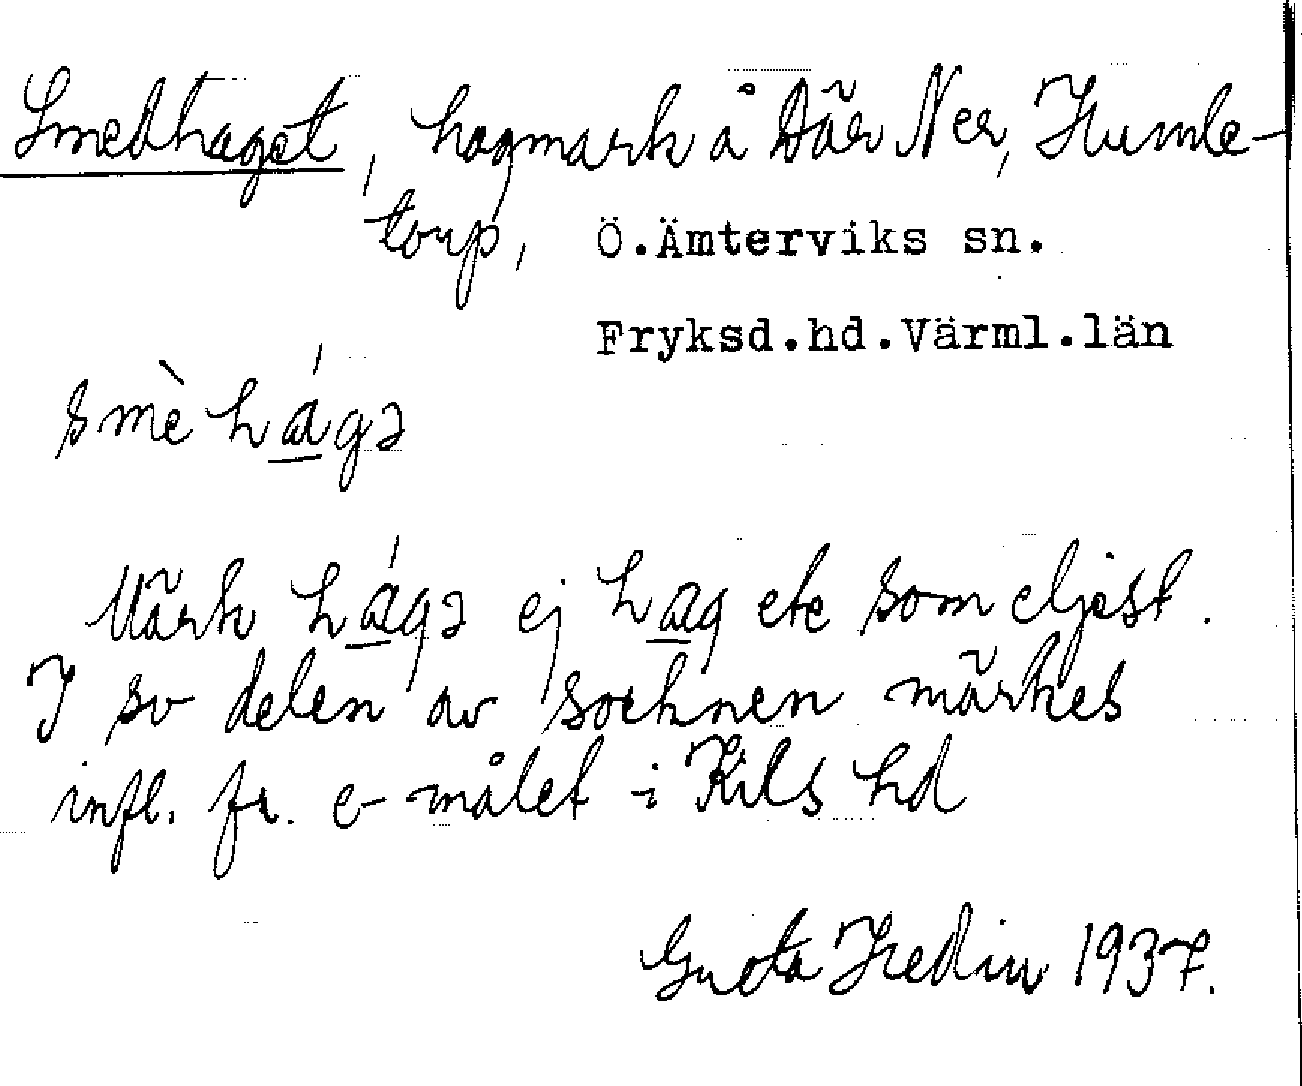 Smedhaget, hagmark å Där Ner, Humle-
torp, Ö.Ämterviks sn.
Fryksd.hd.Värml.län
smè hágə
Märk hágə ej hag ete som eljest.
I sv delen av socknen märkes
infl. fr. e-målet i Kils hd
Greta Hedin 1937.